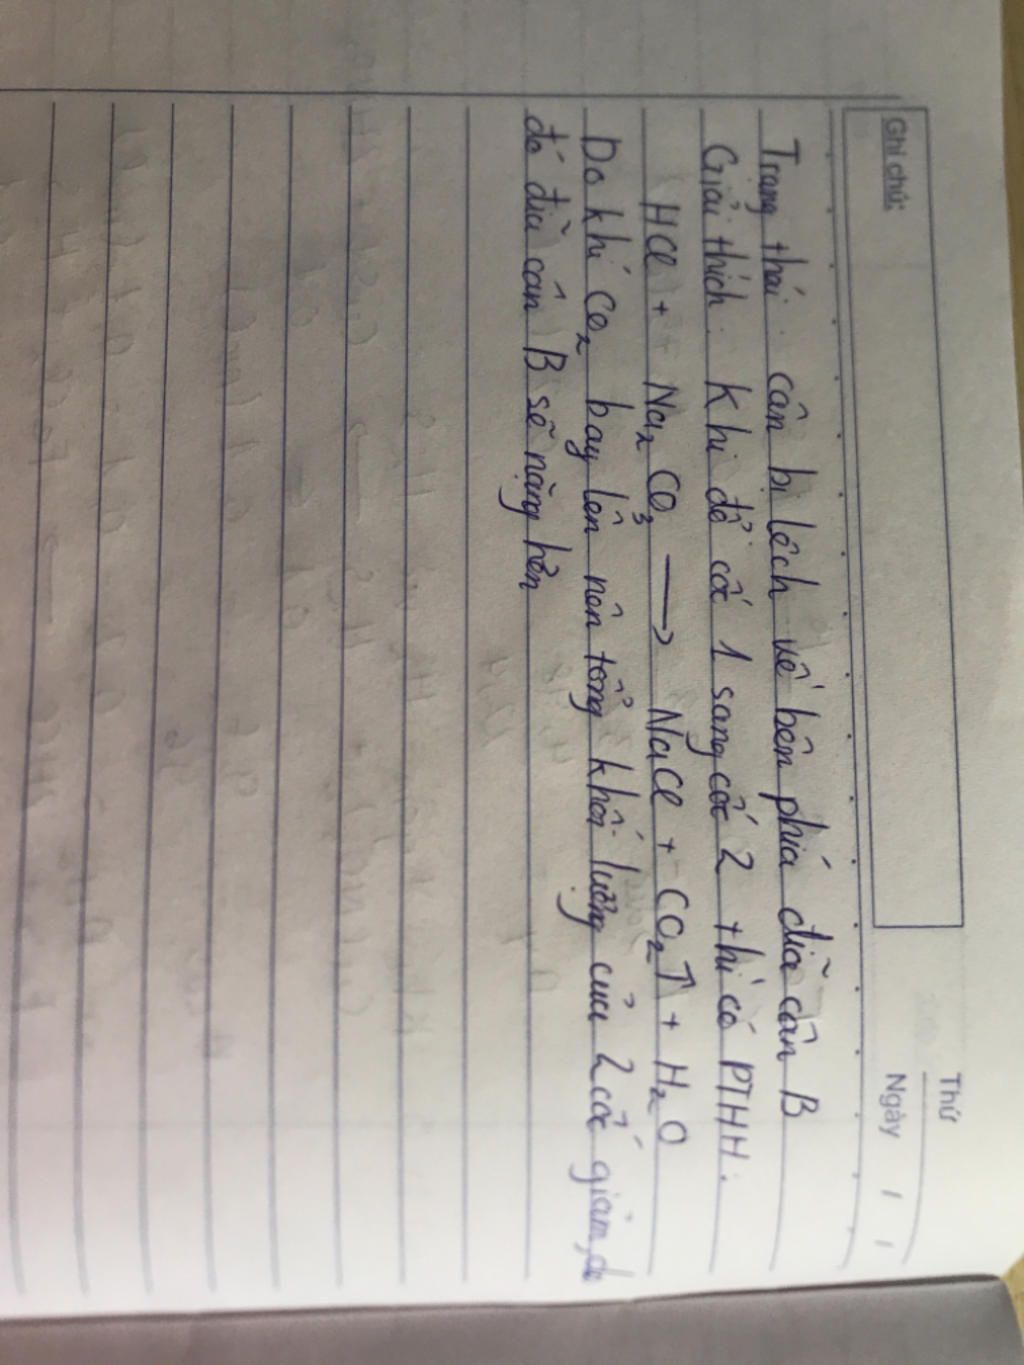 Thứ
Ghi chú:
Ngày / /
Trạng thái: cân bị lệch về bên phía đĩa cân B
Giải thích: Khi đổ cốc 1 sang cốc 2 thì có PTHH:
HCl + Na₂CO₃ ⟶ NaCl + CO₂↑ + H₂O
Do khí CO₂ bay lên nên tổng khối lượng của 2 cốc giảm, do
đó đĩa cân B sẽ nặng hơn